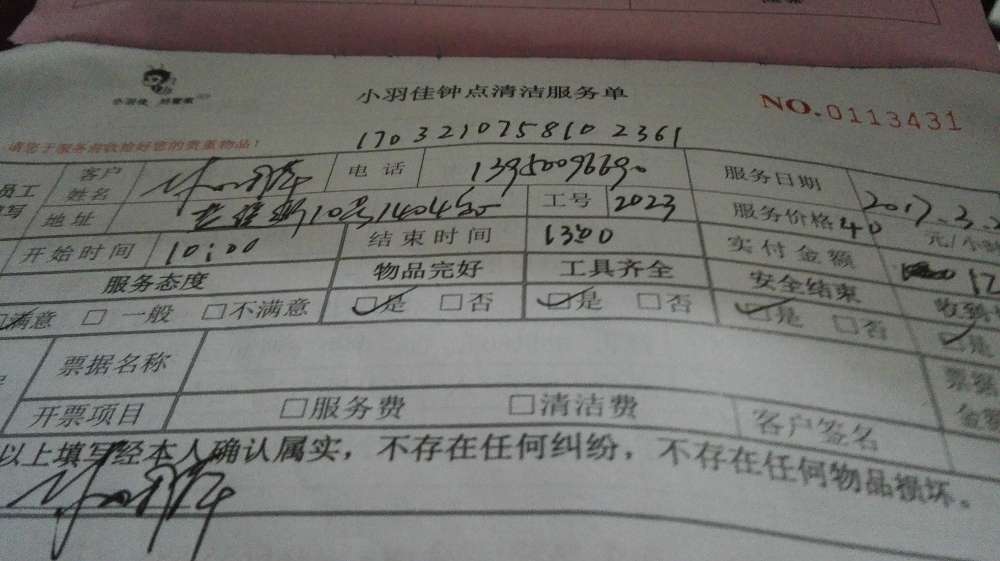 小羽佳
小羽佳钟点清洁服务单
NO.0113431
请您于服务前收拾好您的贵重物品!
170321075810 2361
员工
客户
姓名
电话
13950096690
服务日期
2017.3.2
地址
10号1404室
工号
2023
服务价格
40
元/小时
开始时间
10:00
结束时间
13:00
实付金额
12
服务态度
物品完好
工具齐全
安全结束
收到
满意 □ 一般 □不满意
□是 □否
□是 □否
□是 □否
□是
票据名称
票据
开票项目
□服务费 □清洁费
客户签名
金额
以上填写经本人确认属实，不存在任何纠纷，不存在任何物品损坏。